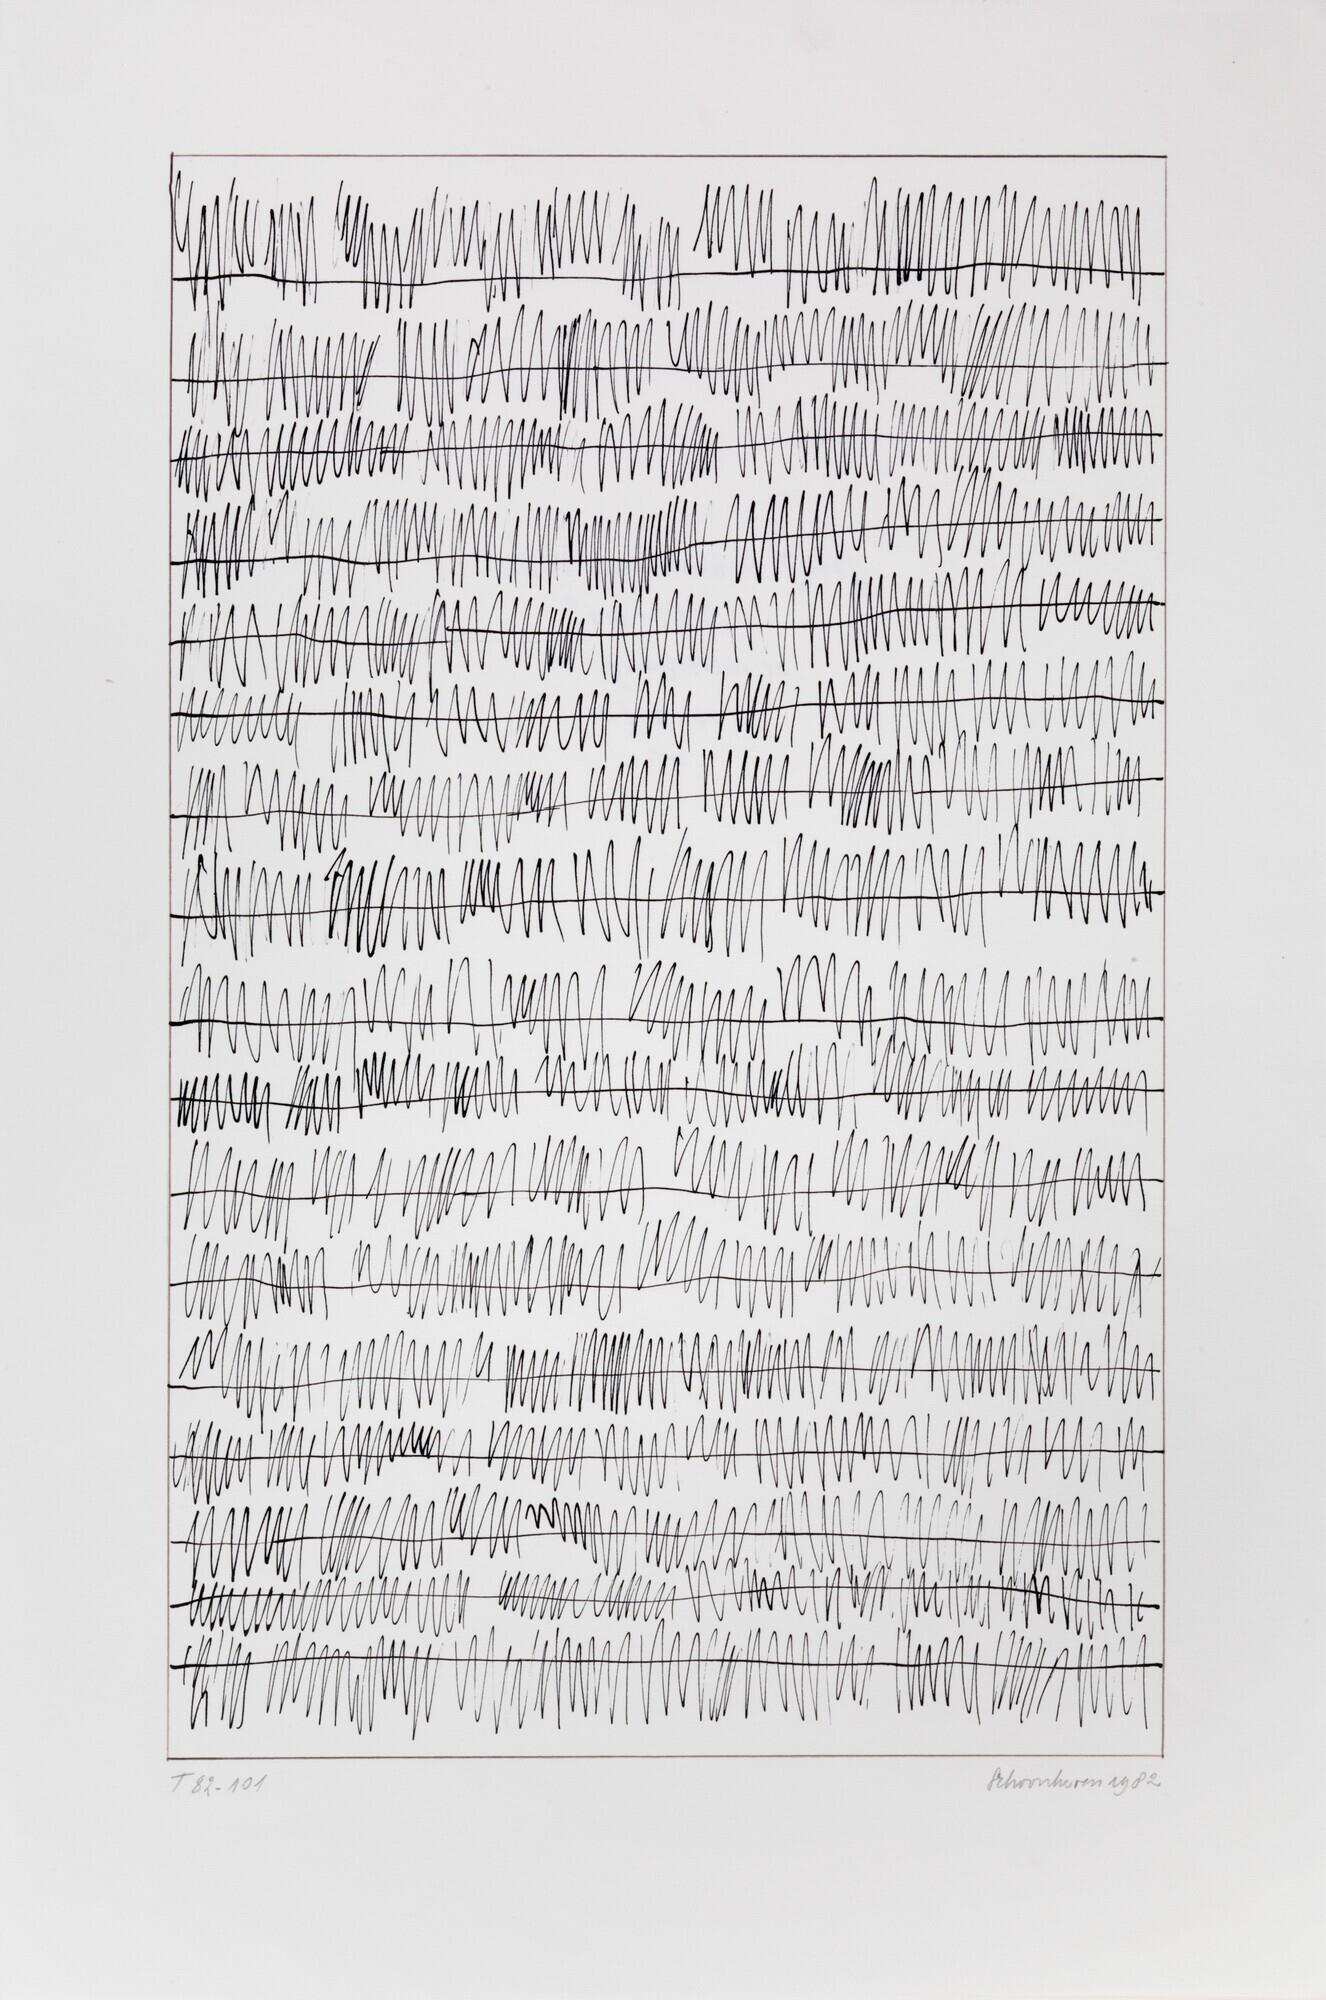 T 82-101
Schoonhoven 1982